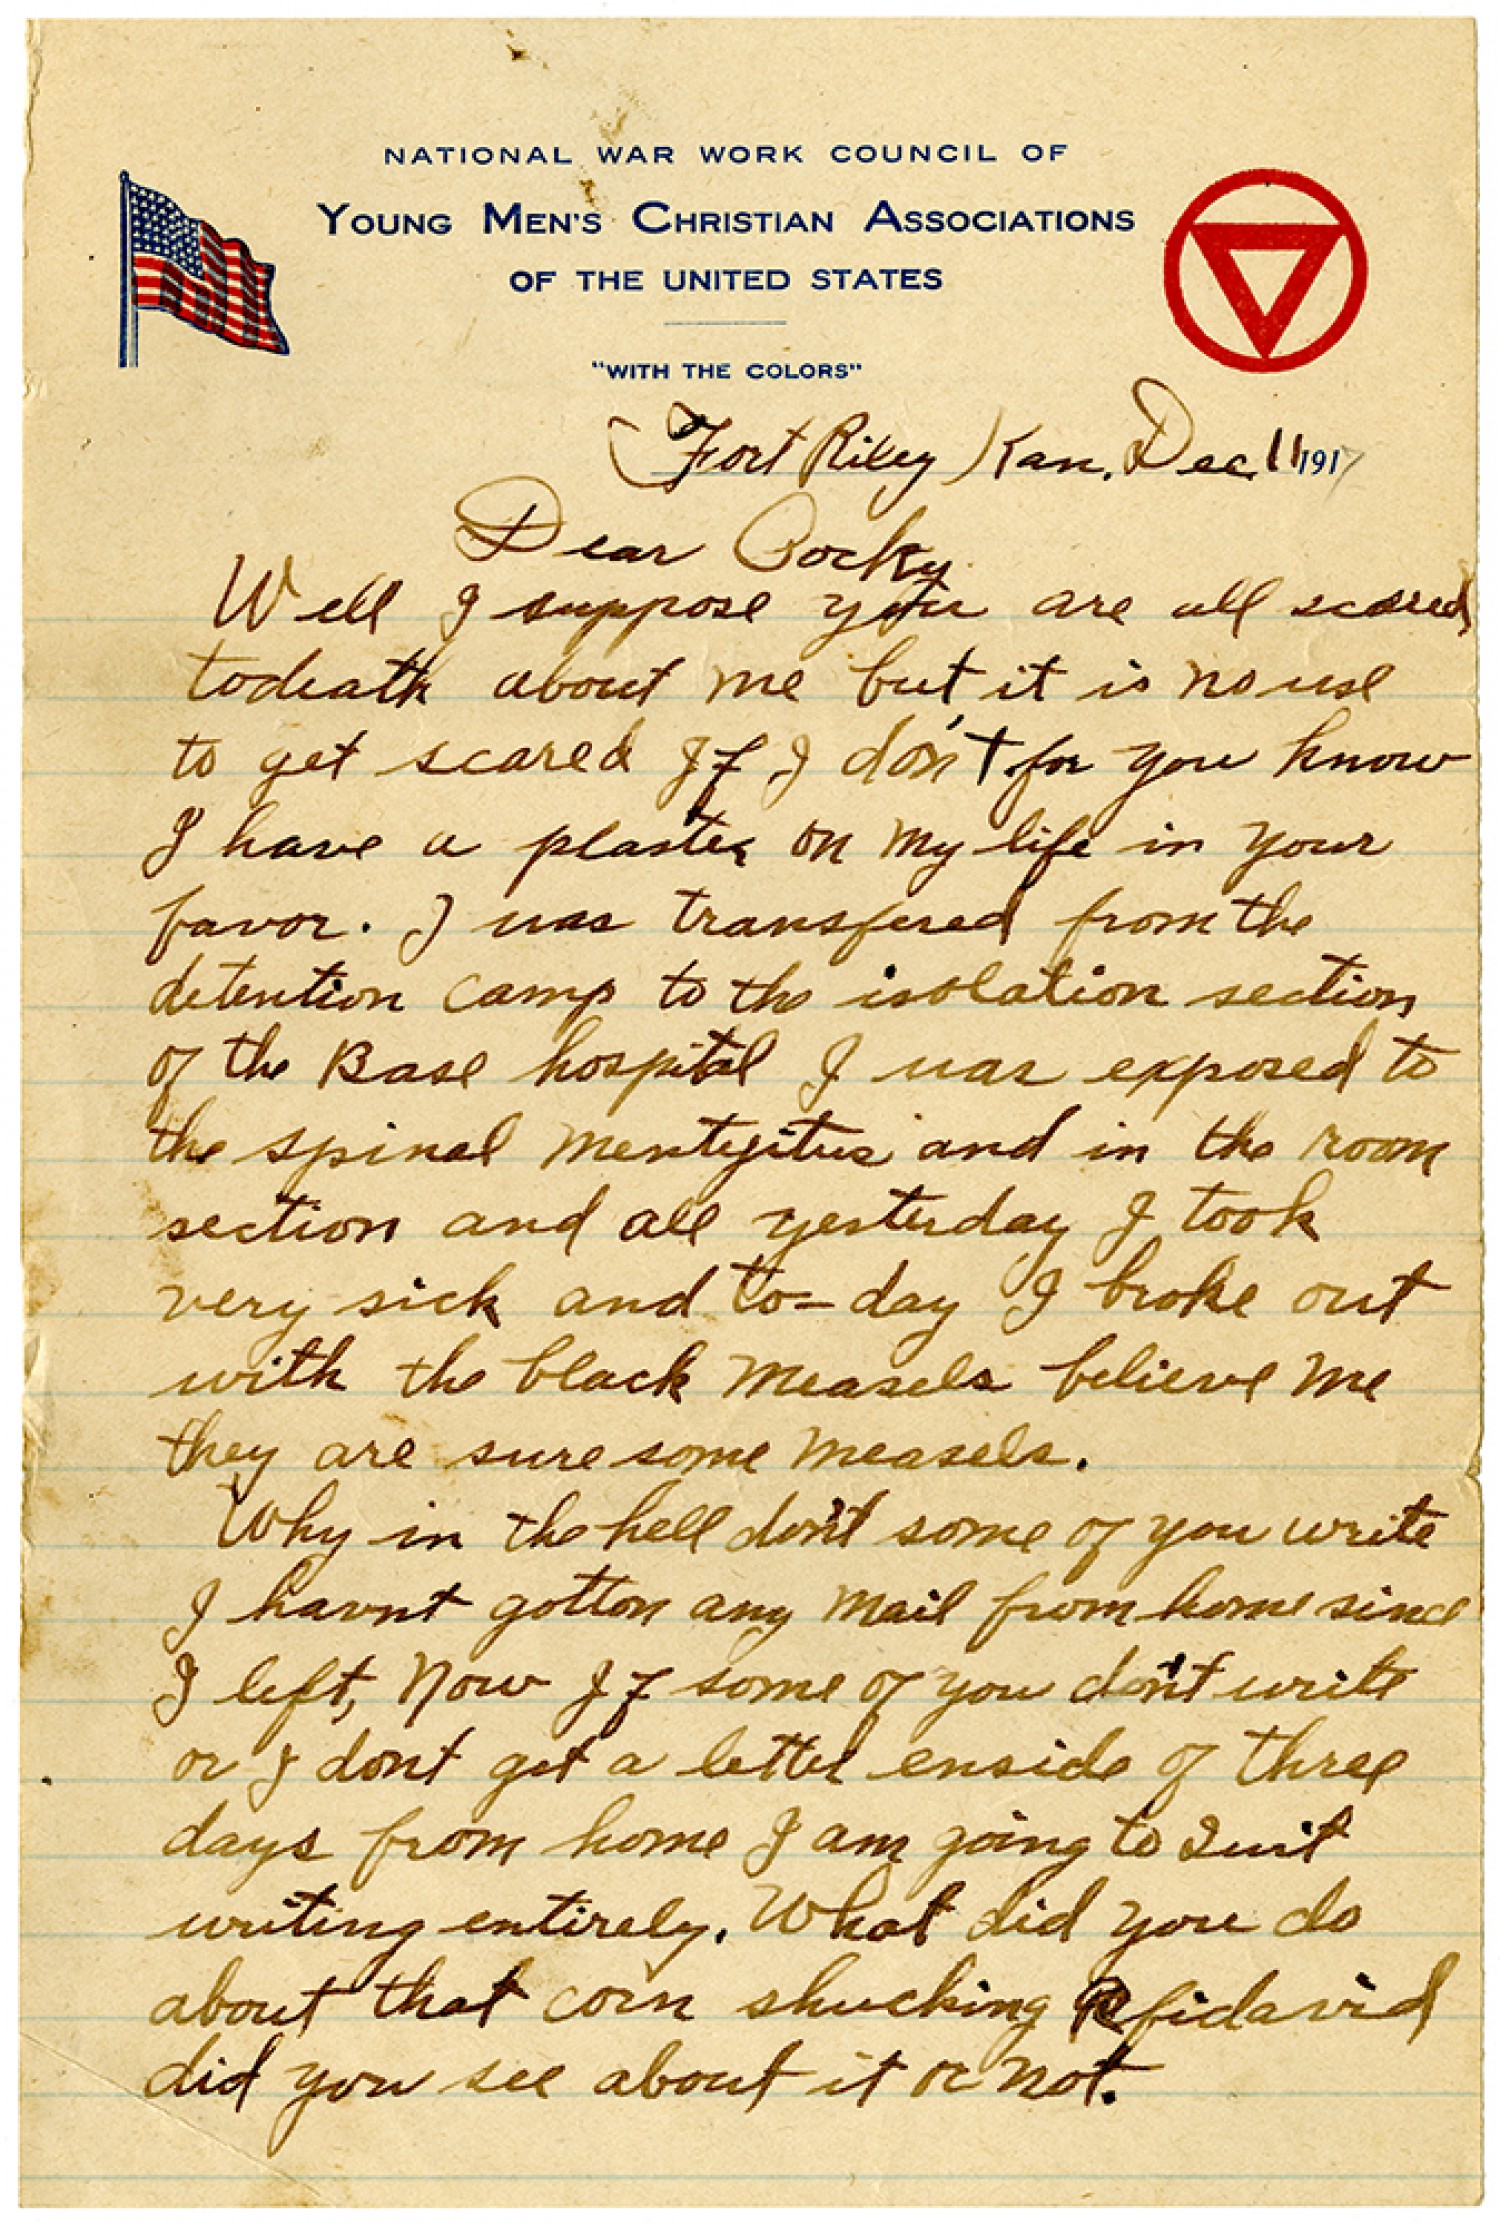 NATIONAL WAR WORK COUNCIL OF
YOUNG MEN'S CHRISTIAN ASSOCIATIONS
OF THE UNITED STATES
"WITH THE COLORS"
Fort Riley Kan. Dec 11 1917
Dear Pocky
Well I suppose you are all scared
todeath about me but it is no use
to get scared If I don't for you know
I have a plaster on my life in your
favor. I was transfered from the
detention camp to the isolation section
of the Base hospital I was exposed to
the spinal mentigitus and in the room
section and all yesterday I took
very sick and to-day I broke out
with the black measels believe me
they are sure some measels.
Why in the hell don't some of you write
I havnt gotton any mail from home since
I left, Now If some of you don't write
or I dont get a letter enside of three
days from home I am going to Quit
writing entirely. What did you do
about that corn shucking Afidavid
did you see about it or not.